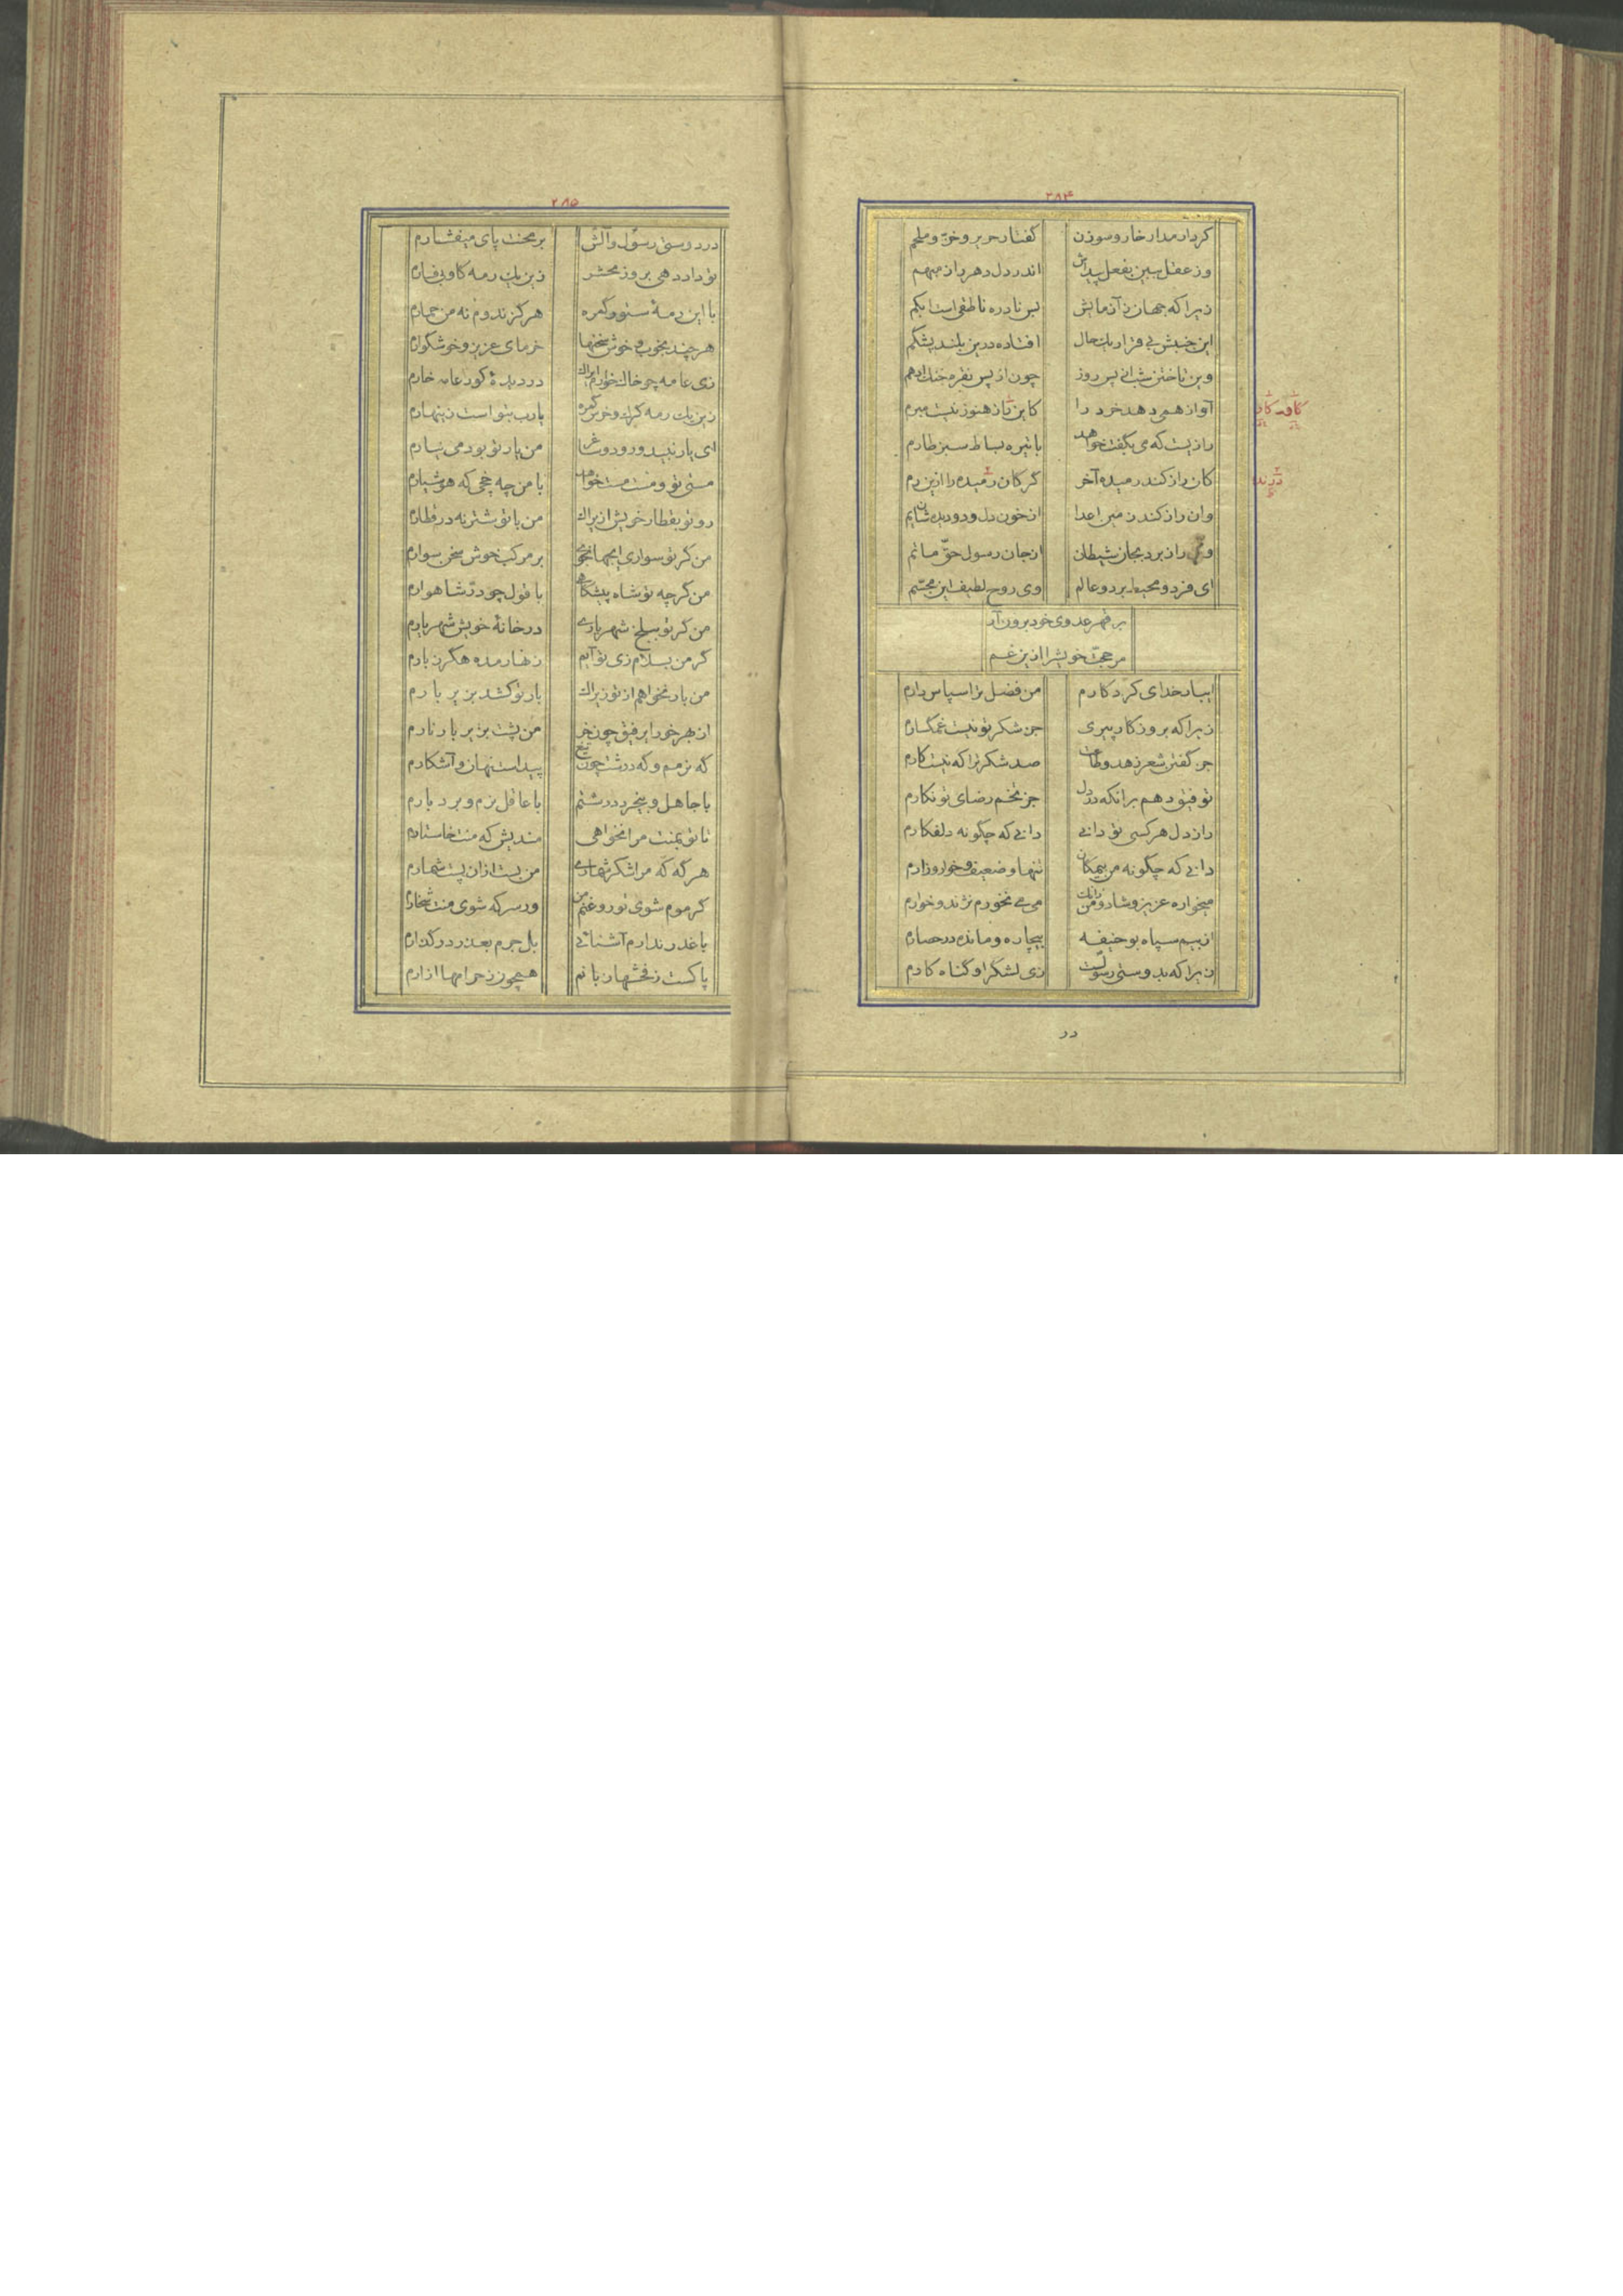 ۲۸۴
کردار مدار خار و سوزن گفتار حریر و خزّ و ملحم
وز عقل ببین بفعل پیداش اندر دل دهر راز مبهم
زیرا که جهان ز آزمایش بس نادره ناطقی است ابکم
این جنبش بی قرار یک حال افتاده درین بلند پشکم
وین تاختن شب از پس روز چون از پس نقره خنگ ادهم
آواز همی دهد خرد را کاین تاز هنوز نیست مبرم
رازیست که می بگفت خواهد با تیره بساط سبز طارم
کان راز کند رمیده آخر گرگان رمیده را ازین رم
وان راز کند زمین اعدا از خون دل و دو دیده شان یم
راز برد بجان شیطان از جان رسول حقّ ماتم
ای فرد و محیط بر دو عالم وی روح لطیف این مجسّم
بر قهر عدوی خود برون آر
مر حجّت خویش را ازین غم
ای بار خدای کردگارم من فضل ترا سپاس دارم
زیرا که بروزگار پیری جز شکر تو نیست غمگسارم
جز گفتن شعر زهد و طاعت صد شکر ترا که نیست کارم
توفیق دهم بر انکه در دل جز تخم رضای تو نکارم
راز دل هر کسی تو دانی دانی که چگونه دلفکارم
دانی که چگونه من بیمکان تنها و ضعیف و خوار و زارم
میخواره عزیز و شاد و من زانک می می نخورم نژند و خوارم
از بیم سپاه بوحنیفه بیچاره و مانده در حصارم
زیرا که بدوستی رسولت زی لشگر او گناه کارم
در
کاف
۲۸۵
در دوستی رسول و آلش بر محنت پای میفشارم
تو داد دهی بروز محشر زین یک رمه گاو بی فسارم
با این رمهٔ ستور گمره هرگز ندوم نه من حمارم
هر چند بخوب و خوش سخنها خرمای عزیز و خوشگوارم
زی عامه چو خاک خوارم ایراک در دیدهٔ کور عامه خارم
زین یک رمه گرگ و خرس گمره یارب بتو است زینهارم
ای یار نبید و رود و ساغر من یار تو بود می نیارم
مستی تو و مست مست خواهد با من چه چخی که هوشیارم
رو تو بقطار خویش ازیراک من با تو شتر نه در قطارم
من گر تو سواری ای جهانجوی بر مرکب خوش سخن سوارم
من گر چه تو شاه پیشگاهی با قول چو درّ شاهوارم
من گر تو ببلخ شهریاری در خانهٔ خویش شهریارم
گر من بسلام زی تو آیم زنهار مده هگرز بارم
من یار نخواهم از تو زیراک بار تو کشد بزیر بارم
از بهر خور ای رفیق چون خر من پشت بزیر بار نارم
گه نرمم و گه درشت چون تیغ پیداست نهان و آشکارم
با جاهل و بیخرد درشتم با عاقل نرم و بردبارم
تا تو بمنت مرا نخواهی مندیش که منت خاستارم
هر گه که مرا شکر شماری من بست ازان پست شمارم
گر موم شوی تو روغنم من ور سرکه شوی منت شخارم
با غدر ندارم آشنائی بل جرم بعذر در گذارم
پاکست ز فحشها زبانم همچون ز حرامها ازارم